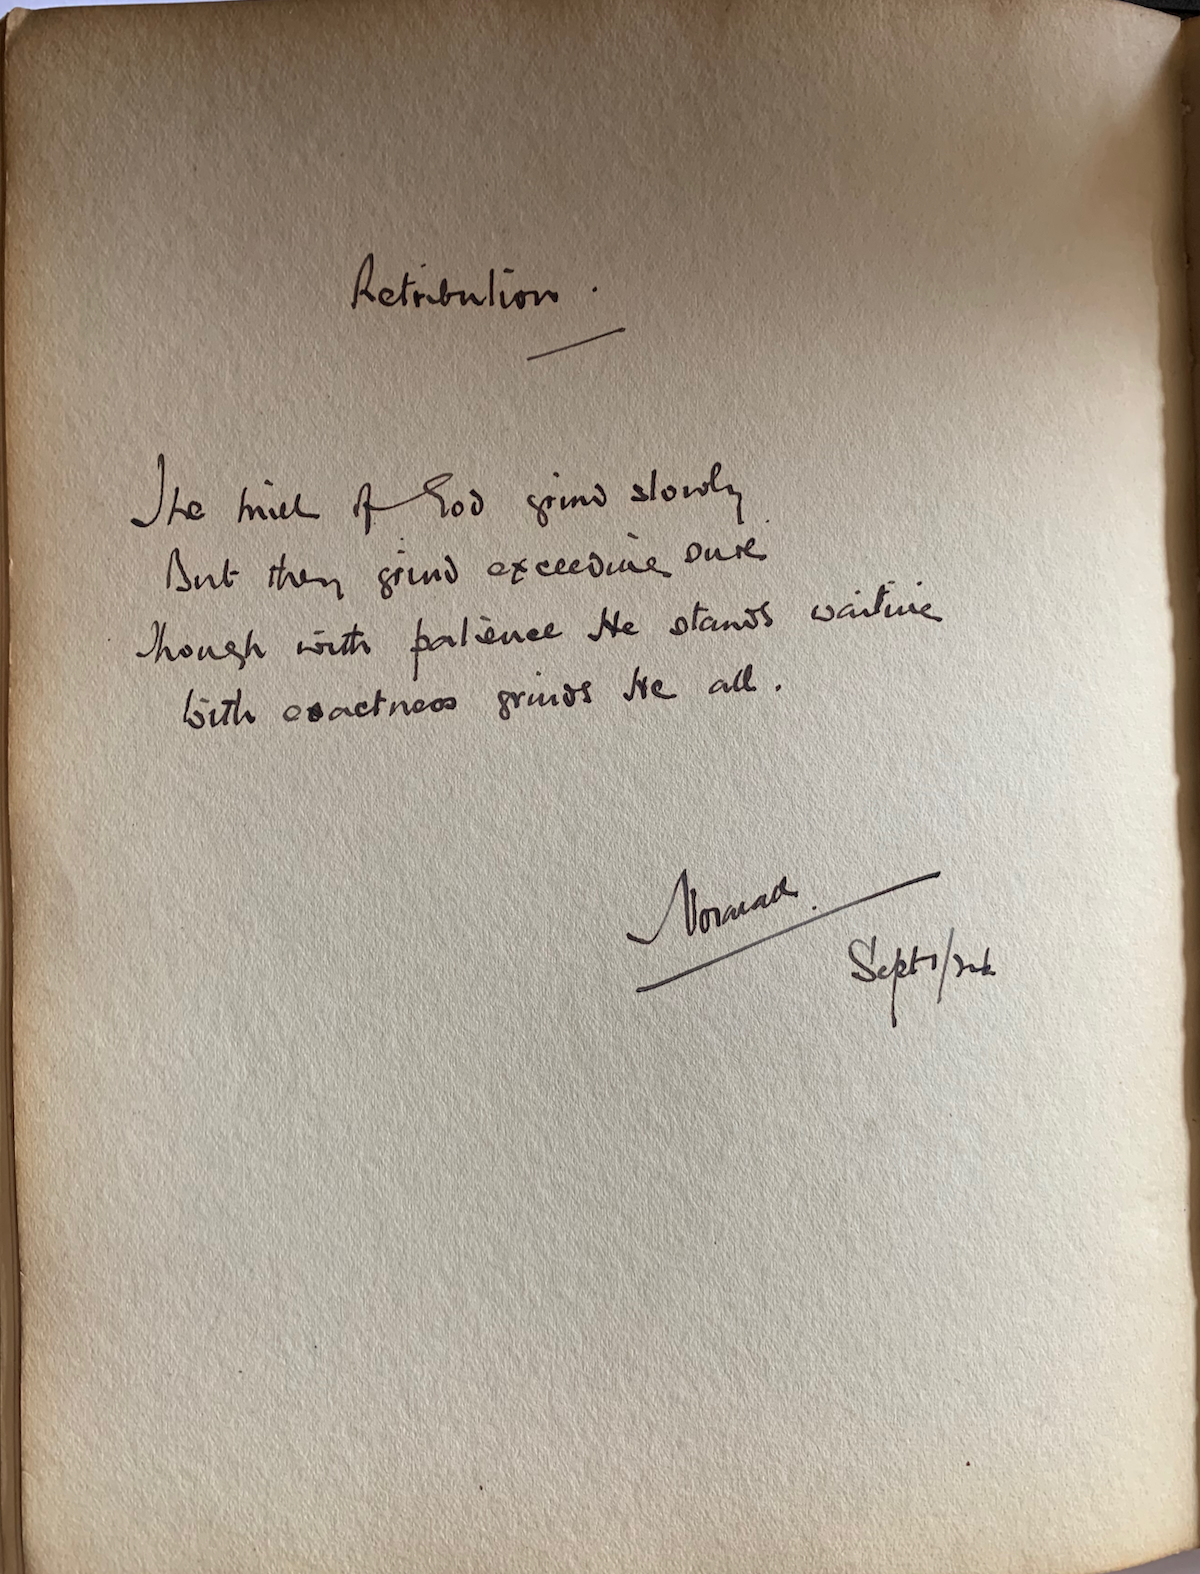 Retribution.
The mill of God grind slowly
But they grind exceeding sure
Though with patience He stands waiting
With exactness grinds He all.
Sept